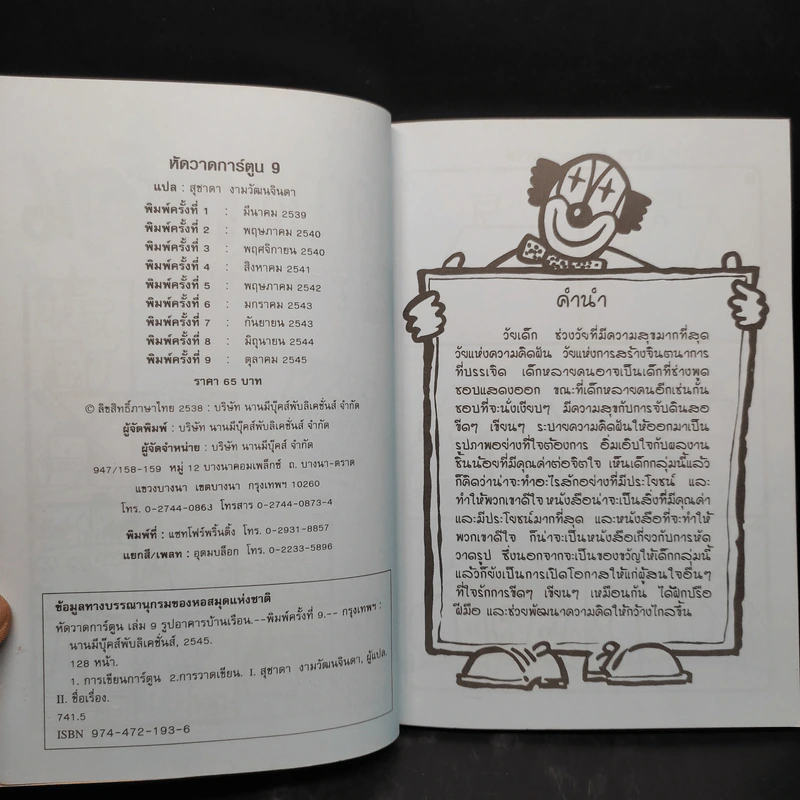 หัดวาดการ์ตูน 9
แปล : สุชาดา งามวัฒนจินดา
พิมพ์ครั้งที่ 1 : มีนาคม 2539
พิมพ์ครั้งที่ 2 : พฤษภาคม 2540
พิมพ์ครั้งที่ 3 : พฤศจิกายน 2540
พิมพ์ครั้งที่ 4 : สิงหาคม 2541
พิมพ์ครั้งที่ 5 : พฤษภาคม 2542
พิมพ์ครั้งที่ 6 : มกราคม 2543
พิมพ์ครั้งที่ 7 : กันยายน 2543
พิมพ์ครั้งที่ 8 : มิถุนายน 2544
พิมพ์ครั้งที่ 9 : ตุลาคม 2545
ราคา 65 บาท
© ลิขสิทธิ์ภาษาไทย 2538 : บริษัท นานมีบุ๊คส์พับลิเคชั่นส์ จำกัด
ผู้จัดพิมพ์ : บริษัท นานมีบุ๊คส์พับลิเคชั่นส์ จำกัด
ผู้จัดจำหน่าย : บริษัท นานมีบุ๊คส์ จำกัด
947/158-159 หมู่ 12 บางนาคอมเพล็กซ์ ถ. บางนา-ตราด
แขวงบางนา เขตบางนา กรุงเทพฯ 10260
โทร. 0-2744-0863 โทรสาร 0-2744-0873-4
พิมพ์ที่ : แซทโฟร์พริ้นติ้ง โทร. 0-2931-8857
แยกสี/เพลท : อุดมบล็อก โทร. 0-2233-5896
ข้อมูลทางบรรณานุกรมของหอสมุดแห่งชาติ
หัดวาดการ์ตูน เล่ม 9 รูปอาคารบ้านเรือน.--พิมพ์ครั้งที่ 9.-- กรุงเทพฯ :
นานมีบุ๊คส์พับลิเคชั่นส์, 2545.
128 หน้า.
1. การเขียนการ์ตูน 2.การวาดเขียน. I. สุชาดา งามวัฒนจินดา, ผู้แปล.
II. ชื่อเรื่อง.
741.5
ISBN 974-472-193-6
คำนำ
วัยเด็ก ช่วงวัยที่มีความสุขมากที่สุด
วัยแห่งความคิดฝัน วัยแห่งการสร้างจินตนาการ
ที่บรรเจิด เด็กหลายคนอาจเป็นเด็กที่ช่างพูด
ชอบแสดงออก ขณะที่เด็กหลายคนอีกเช่นกัน
ชอบที่จะนั่งเงียบๆ มีความสุขกับการจับดินสอ
ขีดๆ เขียนๆ ระบายความคิดฝันให้ออกมาเป็น
รูปภาพอย่างที่ใจต้องการ อิ่มเอิบใจกับผลงาน
ชิ้นน้อยที่มีคุณค่าต่อจิตใจ เห็นเด็กกลุ่มนี้แล้ว
ก็คิดว่าน่าจะทำอะไรสักอย่างที่มีประโยชน์ และ
ทำให้พวกเขาดีใจ หนังสือน่าจะเป็นสิ่งที่มีคุณค่า
และมีประโยชน์มากที่สุด และหนังสือที่จะทำให้
พวกเขาดีใจ ก็น่าจะเป็นหนังสือเกี่ยวกับการหัด
วาดรูป ซึ่งนอกจากจะเป็นของขวัญให้เด็กกลุ่มนี้
แล้วก็ยังเป็นการเปิดโอกาสให้แก่ผู้สนใจอื่นๆ
ที่ใจรักการขีดๆ เขียนๆ เหมือนกัน ได้ฝึกปรือ
ฝีมือ และช่วยพัฒนาความคิดให้กว้างไกลขึ้น